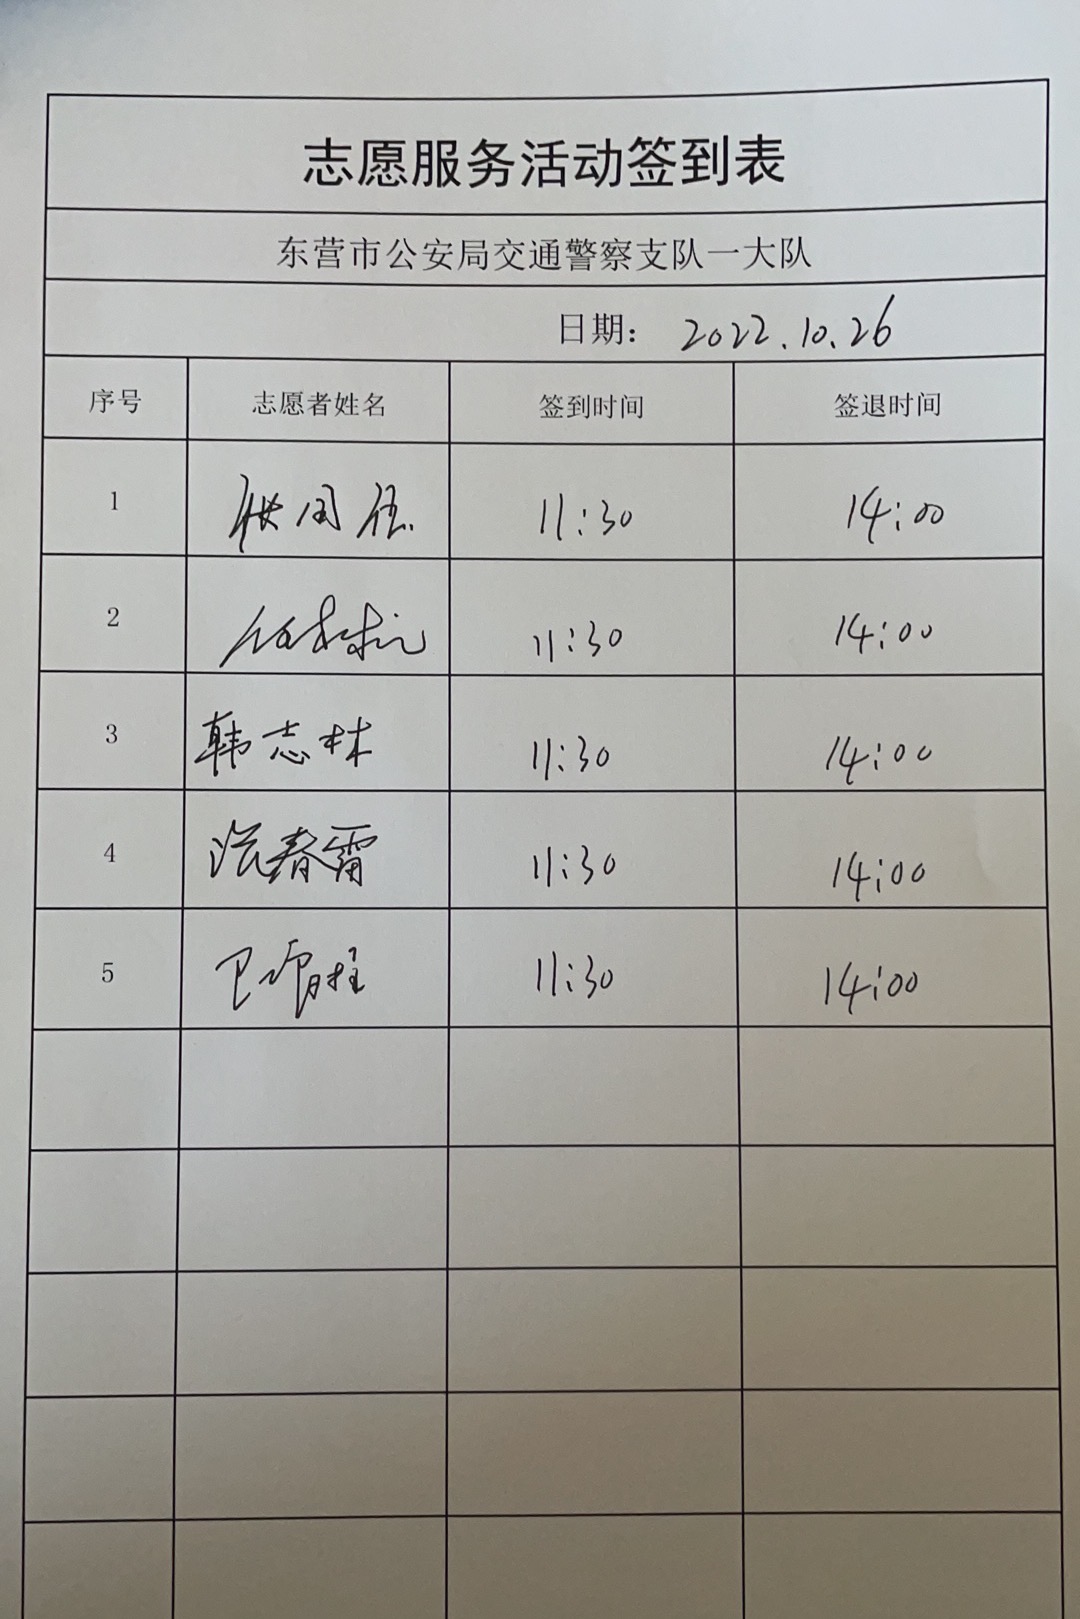 志愿服务活动签到表
东营市公安局交通警察支队一大队
日期： 2022.10.26
序号 志愿者姓名 签到时间 签退时间
1 11:30 14:00
2 11:30 14:00
3 韩志林 11:30 14:00
4 春雷 11:30 14:00
5 11:30 14:00